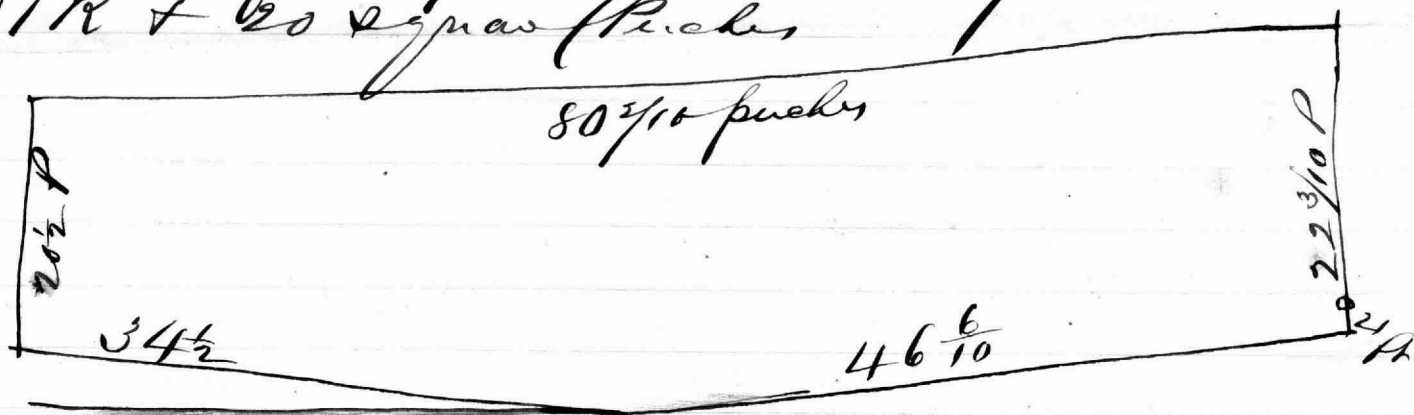 1R + 20 Square Perches
80 2/10 perches
20 1/2 P
22 3/10 P
34 1/2
46 6/10